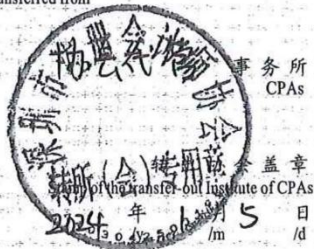 ansferred from
事务所
CPAs
深圳市注册会计师协会
转所(会)专用章
会盖章
Stamp of the transfer-out Institute of CPAs
2024年6月5日
/m /d